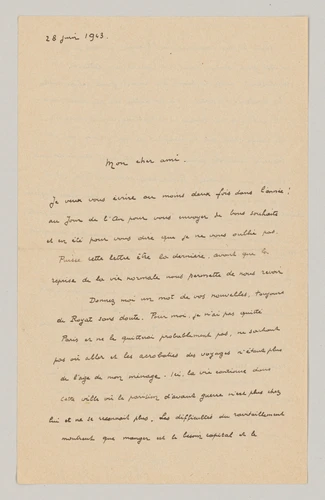 28 juin 1943.
Mon cher ami.
Je veux vous écrire au moins deux fois dans l'année ;
au Jour de l'An pour vous envoyer de bons souhaits
et en été pour vous dire que je ne vous oublie pas.
Puisse cette lettre être la dernière, avant que la
reprise de la vie normale nous permette de nous revoir
Donnez moi un mot de vos nouvelles, toujours
de Royat sans doute. Pour moi, je n'ai pas quitté
Paris et ne le quitterai probablement pas, ne sachant
pas où aller et les acrobaties des voyages n'étant plus
de l'age de mon ménage. Ici, la vie continue dans
cette ville où le parisien d'avant guerre n'est plus chez
lui et ne se reconnait plus. Les difficultés du ravitaillement
montrent que manger est le besoin capital et le